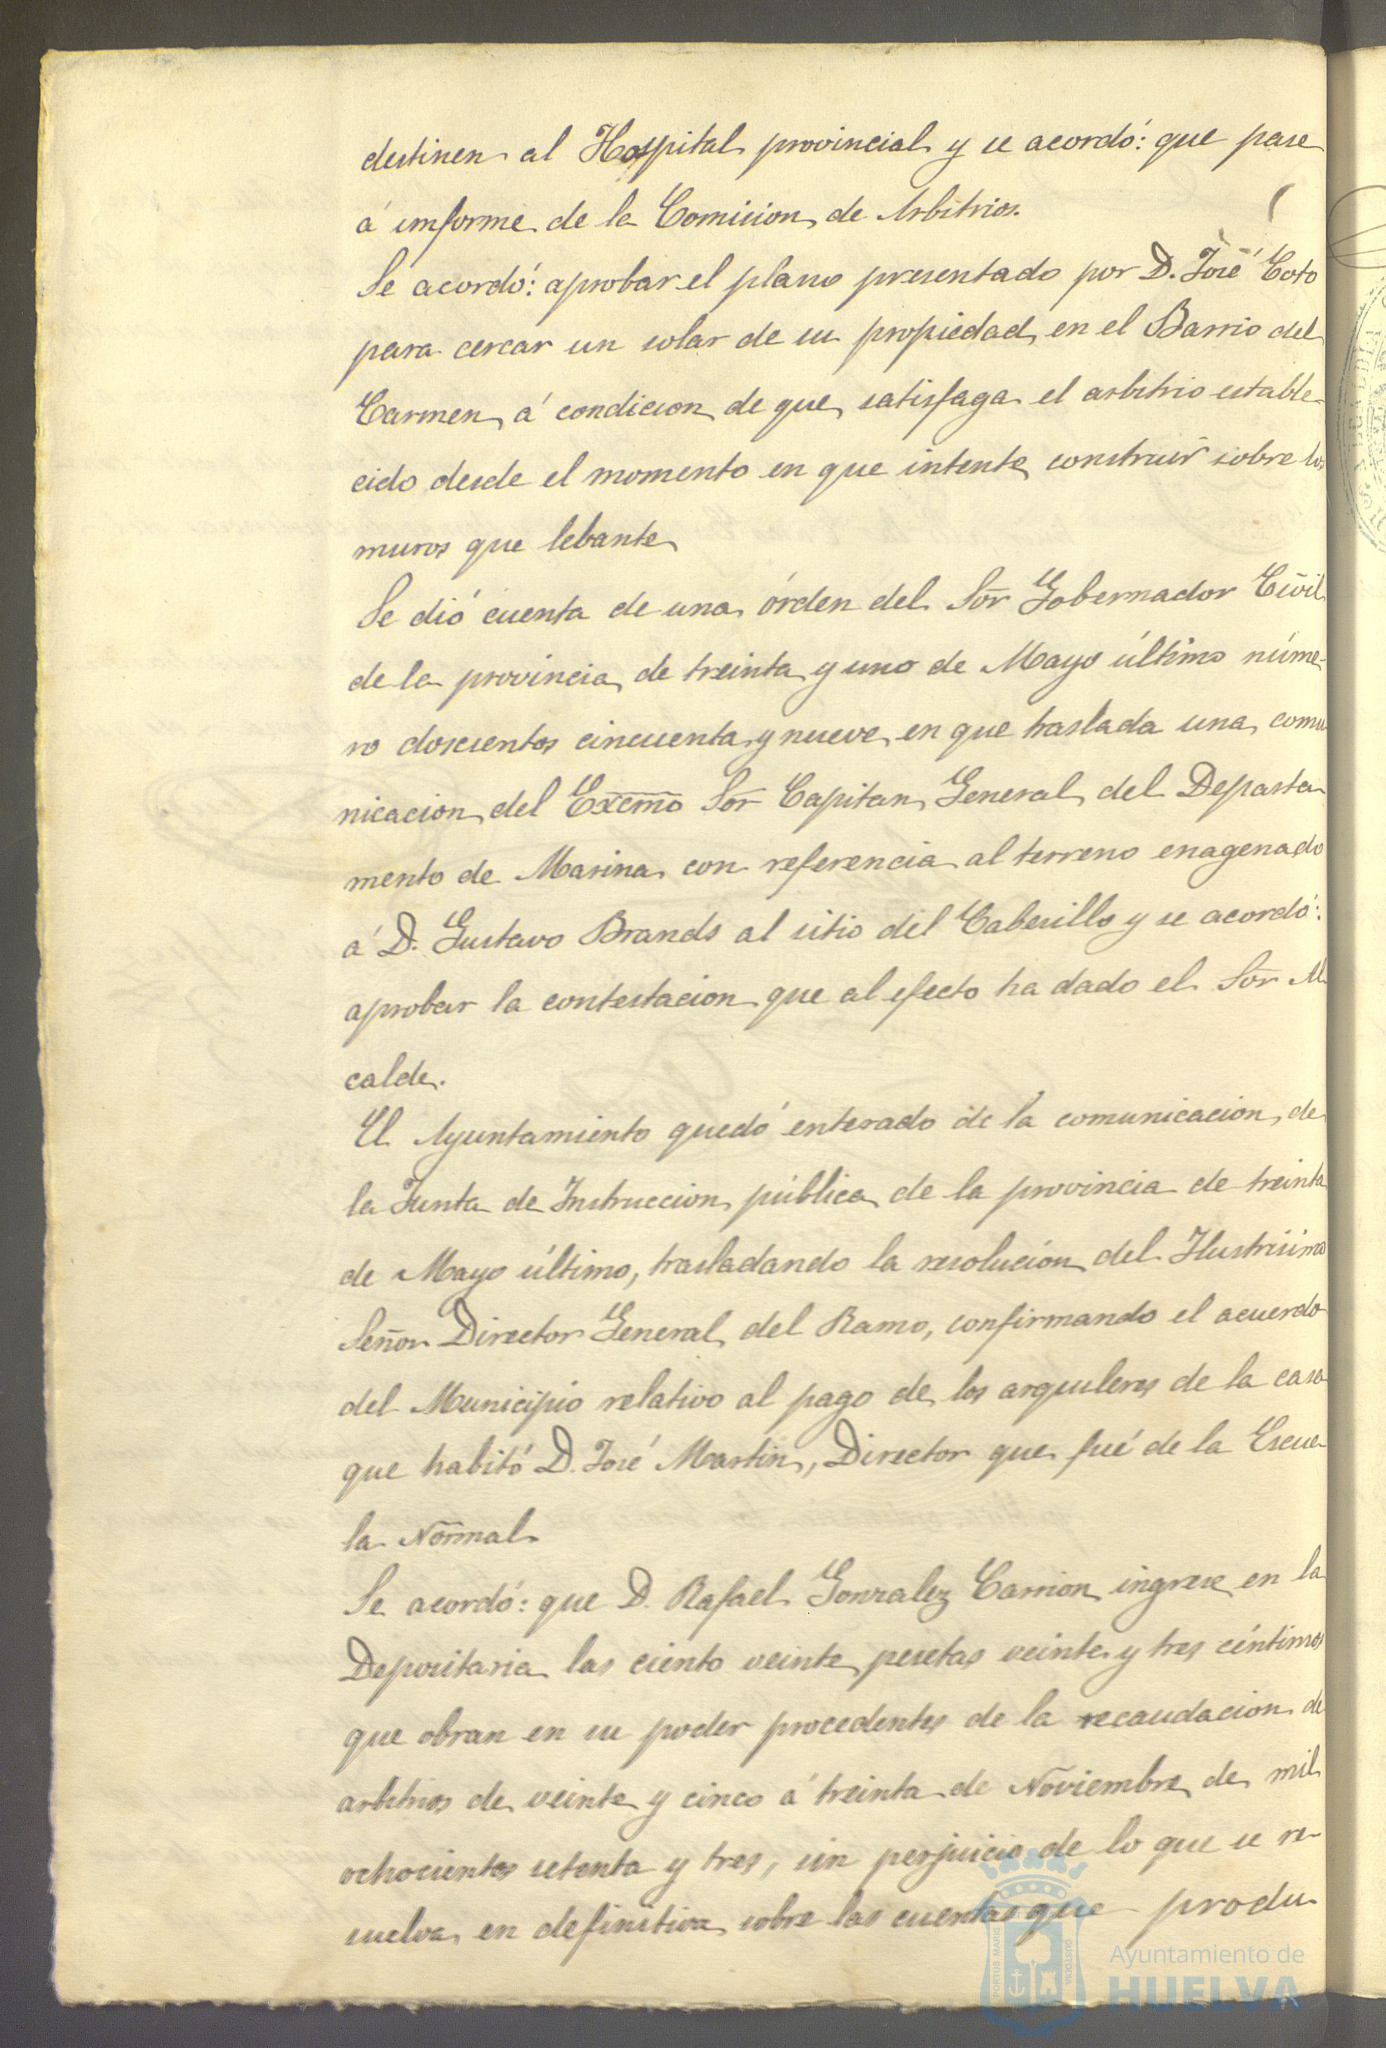 destinen al Hospital provincial y se acordó: que pase
á informe de la Comision de Arbitrios.
Se acordó: aprobar el plano presentado por D. José Coto
para cercar un solar de su propiedad en el Barrio del
Carmen á condicion de que satisfaga el arbitrio estable-
cido desde el momento en que intente construir sobre los
muros que lebante
Se dió cuenta de una órden del Sor Gobernador Civil
de la provincia de treinta y uno de Mayo último núme-
ro doscientos cincuenta y nueve en que traslada una comu
nicacion del Excmo Sor Capitan General del Departa
mento de Marina con referencia al terreno enagenado
á D. Gustavo Brands al sitio del Cabesillo y se acordó:
aprobar la contestacion que al efecto ha dado el Sor Al
calde.
El Ayuntamiento quedó enterado de la comunicacion de
la Junta de Instruccion pública de la provincia de treinta
de Mayo último, trasladando la resolucion del Ilustrisimo
Señor Director General del Ramo, confirmando el acuerdo
del Municipio relativo al pago de los arquileres de la casa
que habitó D. José Martin, Director que fué de la Escue-
la Normal
Se acordó: que D. Rafael Gonzalez Carrion ingrese en la
Depositaria las ciento veinte pesetas veinte y tres céntimos
que obran en su poder procedentes de la recaudacion de
arbitrios de veinte y cinco á treinta de Noviembre de mil
ochocientos setenta y tres, sin perjuicio de lo que se re-
suelva en definitiva sobre las cuentas que produ
Ayuntamiento de
HUELVA
PORTUS MARIS
CUSTODIA